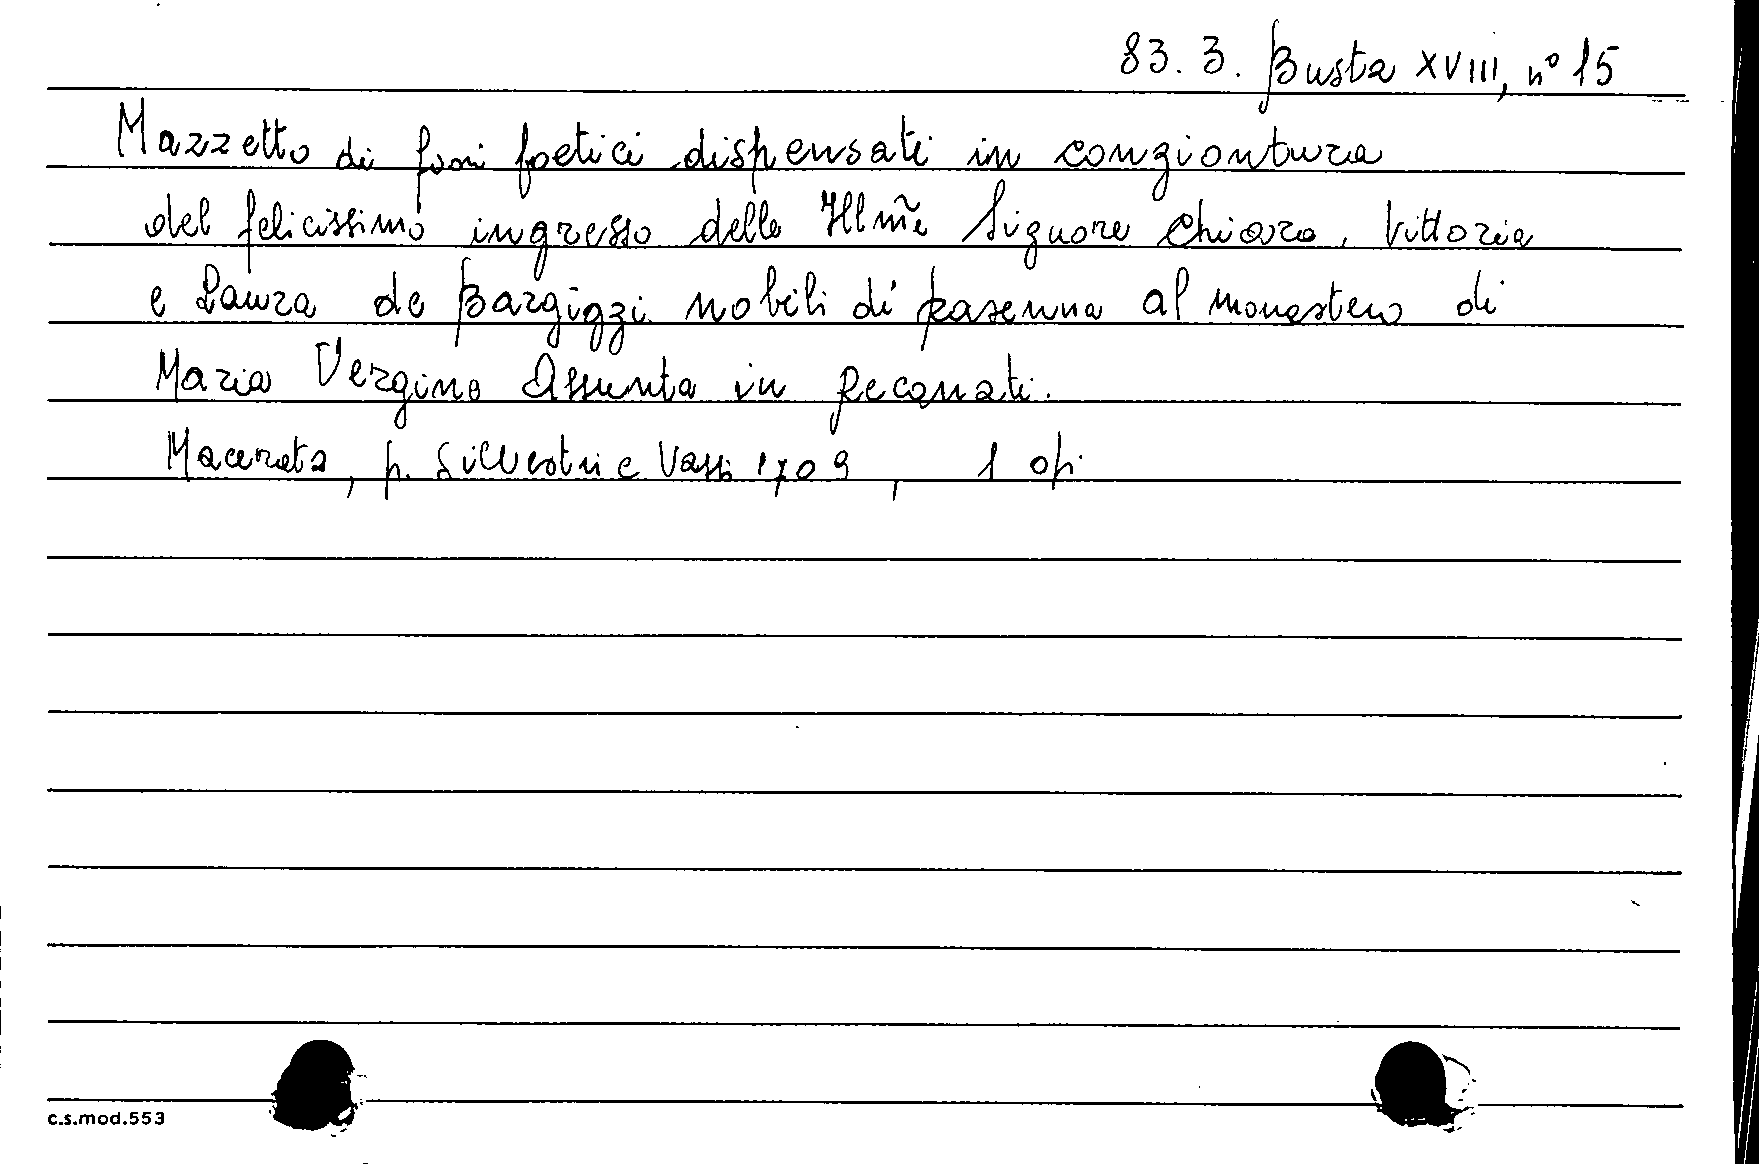 83. 3. Busta XVIII, n° 15
Mazzetto di fiori poetici dispensati in congiontura
del felicissimo ingresso delle Ill.me Signore Chiara, Vittoria
e Laura de Bargigzi nobili di Ravenna al monastero di
Maria Vergine Assunta in Recanati.
Macerata, p. Silvestri e Vassi 1709, 1 op.
c.s.mod.553